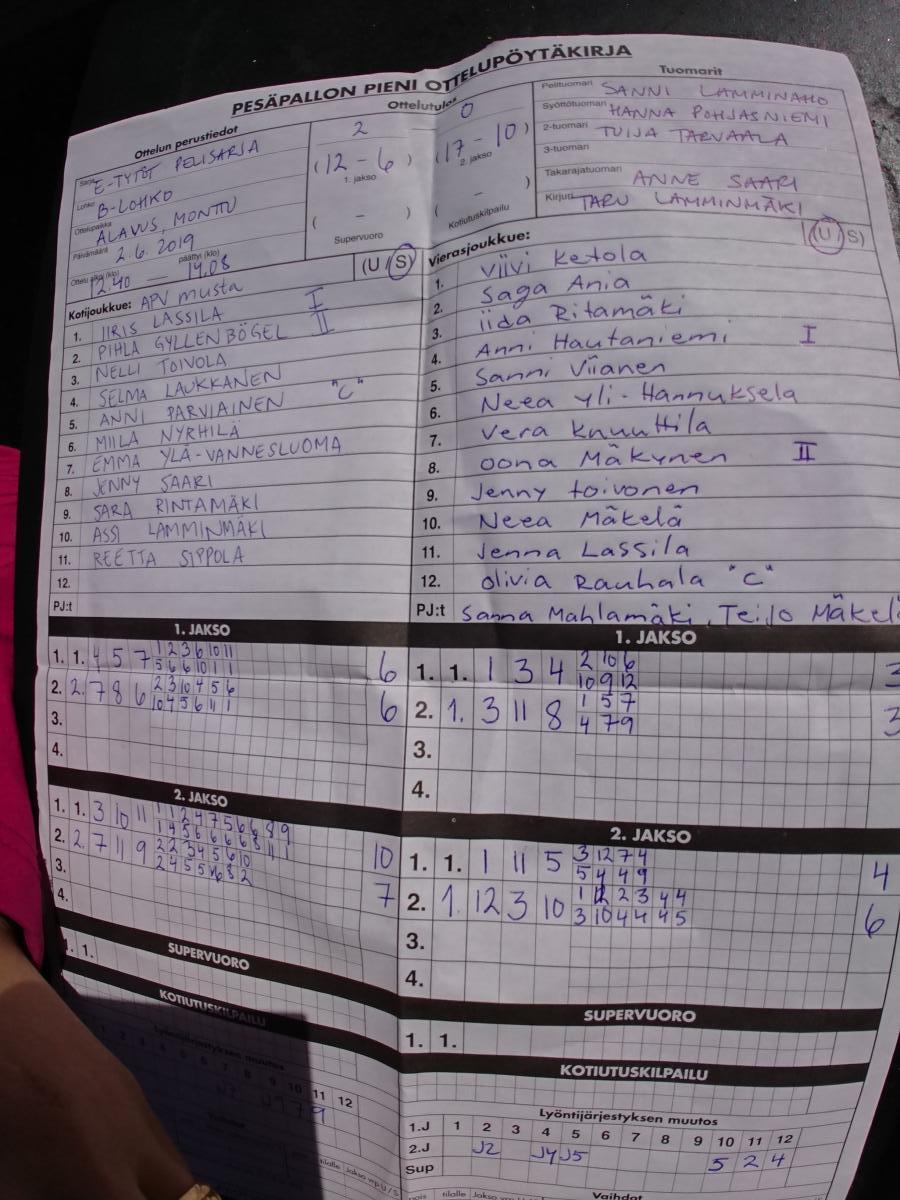 PESÄPALLON PIENI OTTELUPÖYTÄKIRJA
Ottelun perustiedot
Sarja E-TYTÖT PELISARJA
Lohko B-LOHKO
Ottelupaikka ALAVUS, MONTTU
Päivämäärä 2.6.2019
Ottelu alkoi (klo) päättyi (klo)
12.40 — 14.08
Ottelutulos
2 - 0
(12 - 6) (17 - 10)
1. jakso 2. jakso
( - ) ( - )
Supervuoro Kotiutuskilpailu
Tuomarit
Pelituomari SANNI LAMMINAHO
Syöttötuomari HANNA POHJASNIEMI
2-tuomari TUIJA TARVAALA
3-tuomari
Takarajatuomari ANNE SAARI
Kirjuri TARU LAMMINMÄKI
Kotijoukkue: APV musta (U / S)
1. IIRIS LASSILA I
2. PIHLA GYLLENBÖGEL II
3. NELLI TOIVOLA
4. SELMA LAUKKANEN
5. ANNI PARVIAINEN "C"
6. MIILA NYRHILÄ
7. EMMA YLÄ-VANNESLUOMA
8. JENNY SAARI
9. SARA RINTAMÄKI
10. ASSI LAMMINMÄKI
11. REETTA SIPPOLA
12.
PJ:t
Vierasjoukkue: (U / S)
1. Viivi Ketola
2. Saga Ania
3. Iida Ritamäki
4. Anni Hautaniemi I
5. Sanni Viianen
6. Neea Yli-Hannuksela
7. Vera Knuuttila
8. Oona Mäkynen II
9. Jenny Toivonen
10. Neea Mäkelä
11. Jenna Lassila
12. Olivia Rauhala "C"
PJ:t Sanna Mahlamäki, Teijo Mäkelä
1. JAKSO
1. 1. 4 5 7 1 2 3 6 10 11 6
5 6 6 10 1 1
2. 2. 7 8 6 2 3 10 4 5 6 6
10 4 5 6 11 1
3.
4.
2. JAKSO
1. 1. 3 10 11 1 1 2 4 7 5 6 6 8 9 10
1 4 5 6 6 6 6 8 11 1
2. 2. 7 11 9 2 2 3 4 5 6 10 7
3. 2 4 5 5 6 8 2
4.
SUPERVUORO
1. 1.
KOTIUTUSKILPAILU
Lyöntijärjestyksen muutos
1. JAKSO
1. 1. 1 3 4 2 10 6 3
10 9 12
2. 1. 3 11 8 1 5 7 3
4 7 9
3.
4.
2. JAKSO
1. 1. 1 11 5 3 12 7 4 4
5 4 4 9
2. 1. 12 3 10 1 12 2 3 4 4 6
3 10 4 4 4 5
3.
4.
SUPERVUORO
1. 1.
KOTIUTUSKILPAILU
Lyöntijärjestyksen muutos
1.J 1 2 3 4 5 6 7 8 9 10 11 12
2.J J2 J4 J5 5 2 4
Sup
Vaihdot